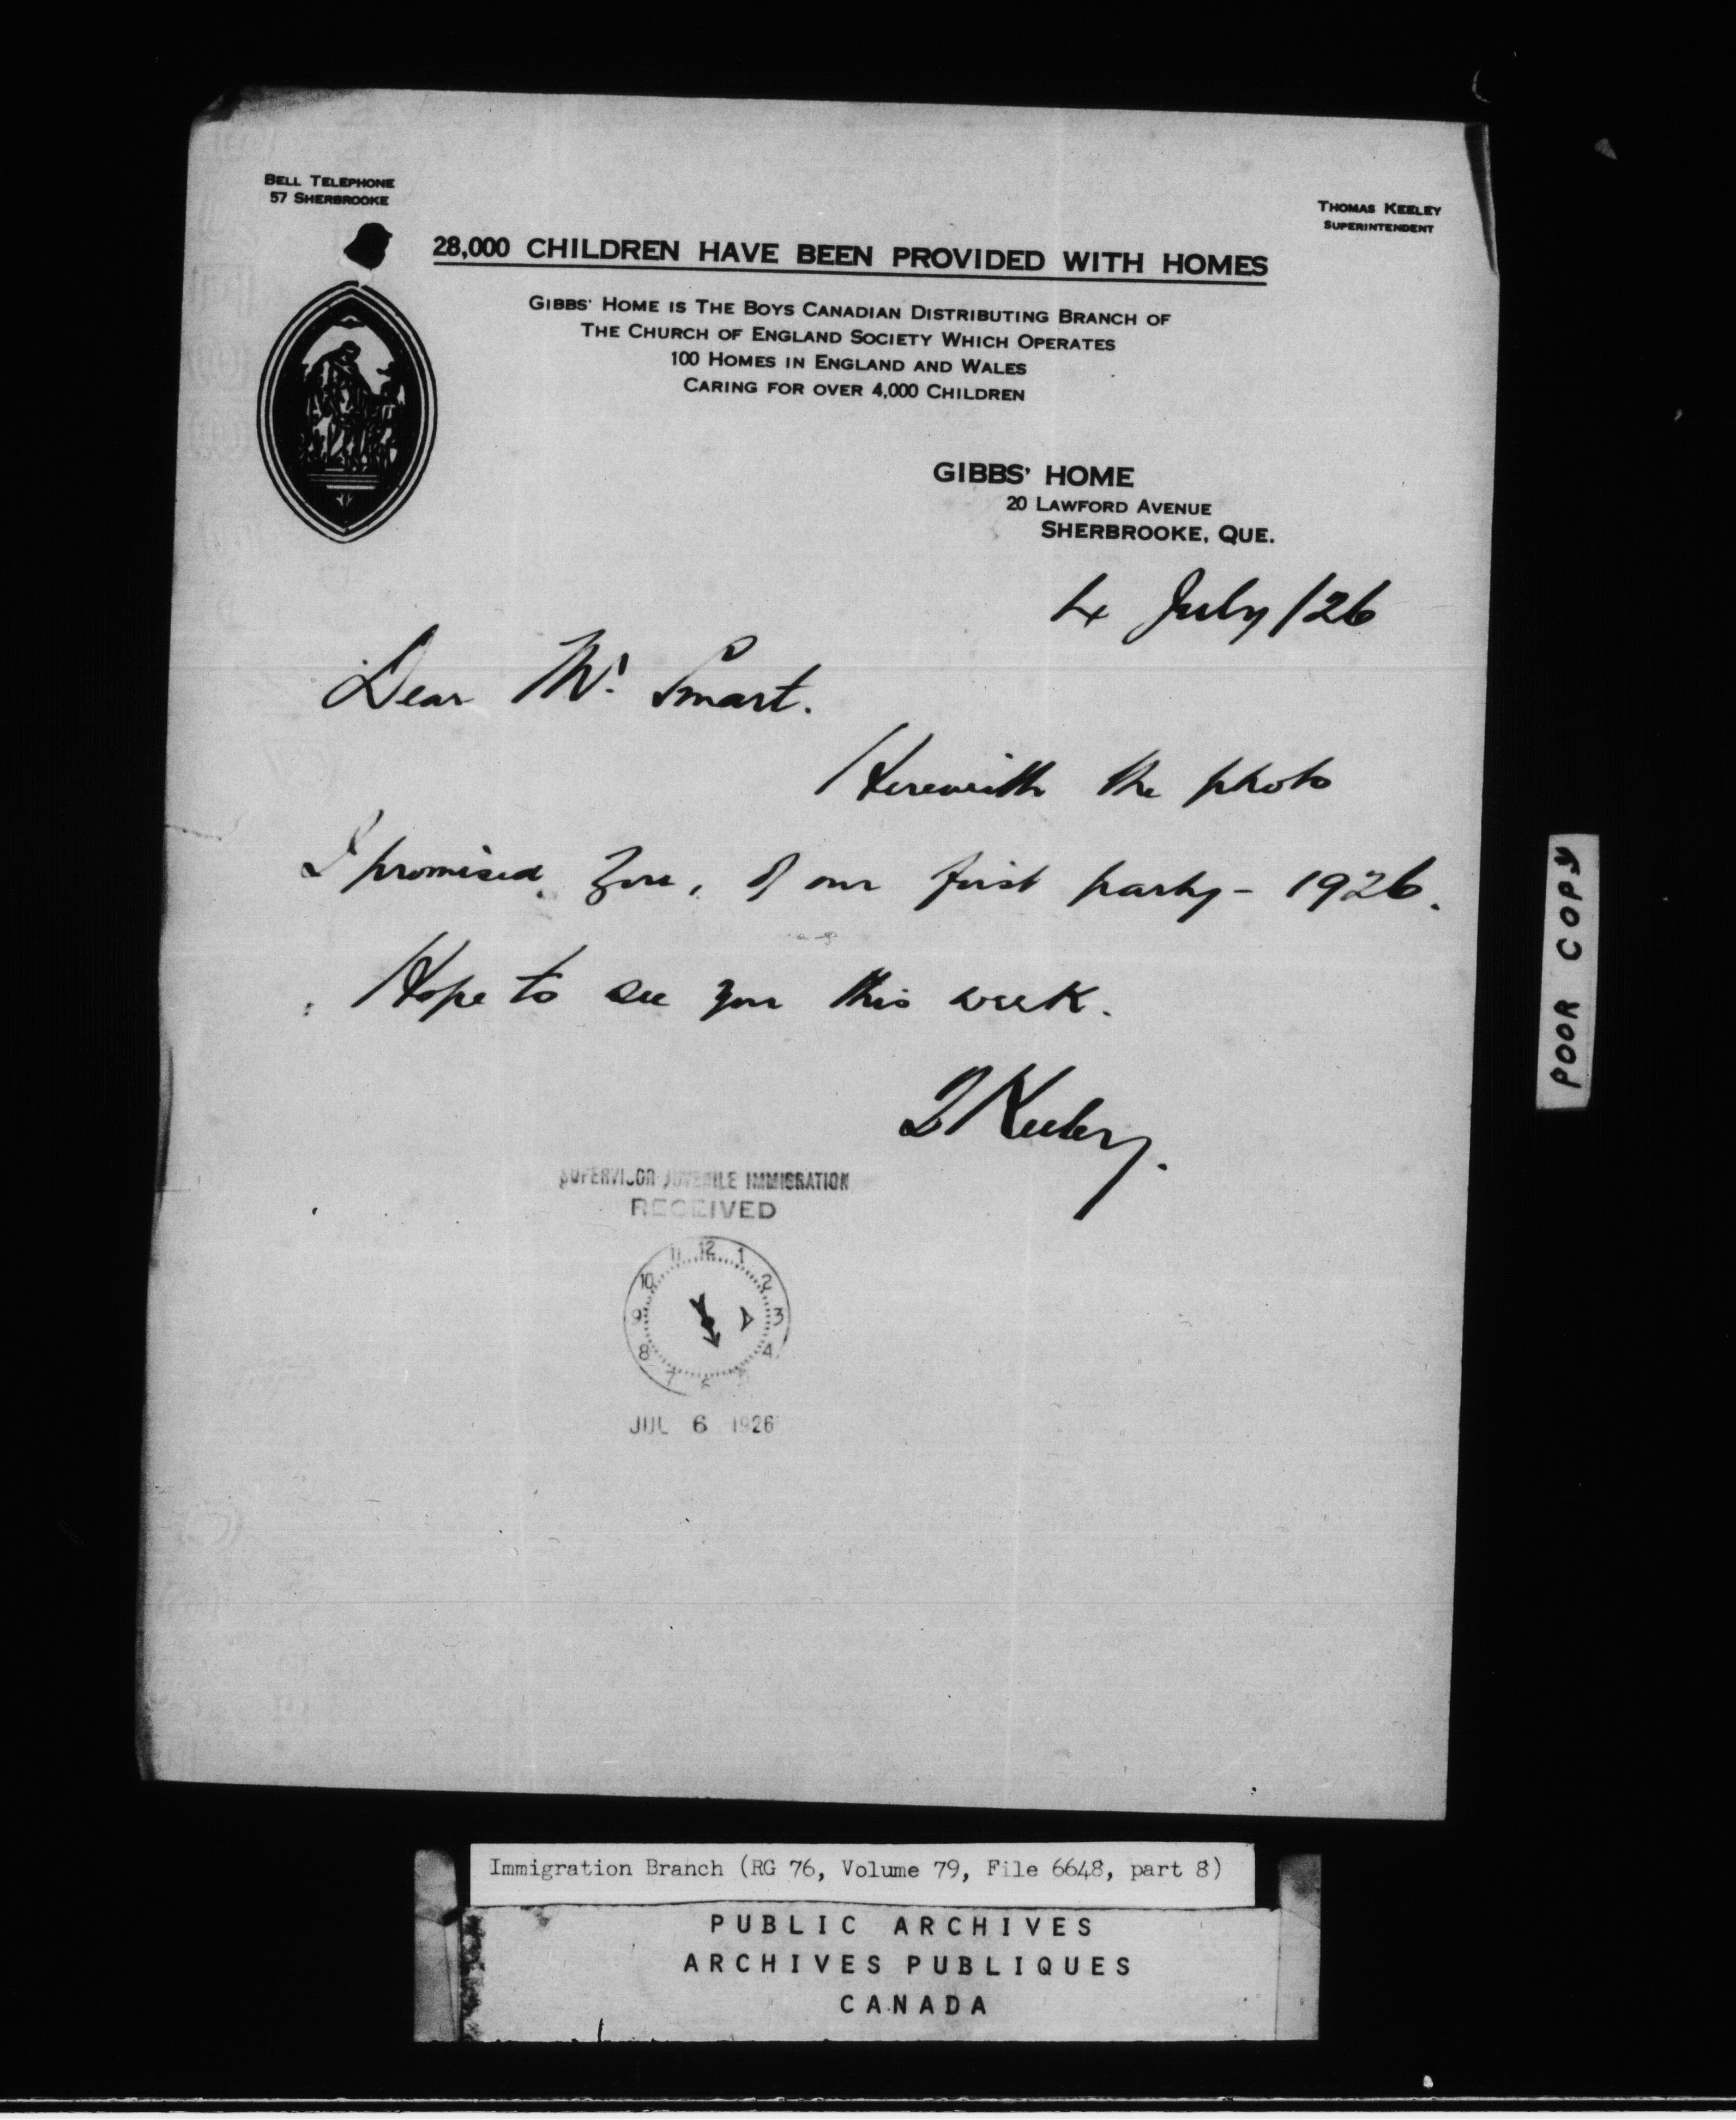 BELL TELEPHONE
57 SHERBROOKE
THOMAS KEELEY
SUPERINTENDENT
28,000 CHILDREN HAVE BEEN PROVIDED WITH HOMES
GIBBS' HOME IS THE BOYS CANADIAN DISTRIBUTING BRANCH OF
THE CHURCH OF ENGLAND SOCIETY WHICH OPERATES
100 HOMES IN ENGLAND AND WALES
CARING FOR OVER 4,000 CHILDREN
GIBBS' HOME
20 LAWFORD AVENUE
SHERBROOKE, QUE.
4 July /26
Dear Mr. Smart.
Herewith the photo
I promised you, of our first party - 1926.
Hope to see you this week.
T Keeley.
SUPERVISOR JUVENILE IMMIGRATION
RECEIVED
11 12 1
10 2
9 3
8 4
7 6
JUL 6 1926
POOR COPY
Immigration Branch (RG 76, Volume 79, File 6648, part 8)
PUBLIC ARCHIVES
ARCHIVES PUBLIQUES
CANADA